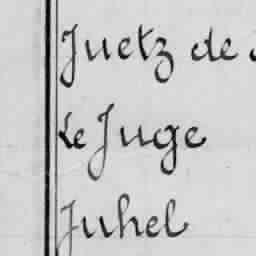 Juetz de
Le Juge
Juhel